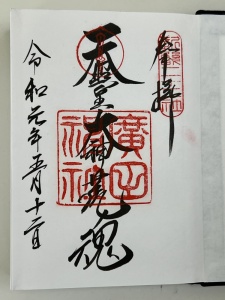 奉拝
天照皇大神荒魂
廣田神社
令和元年五月十二日